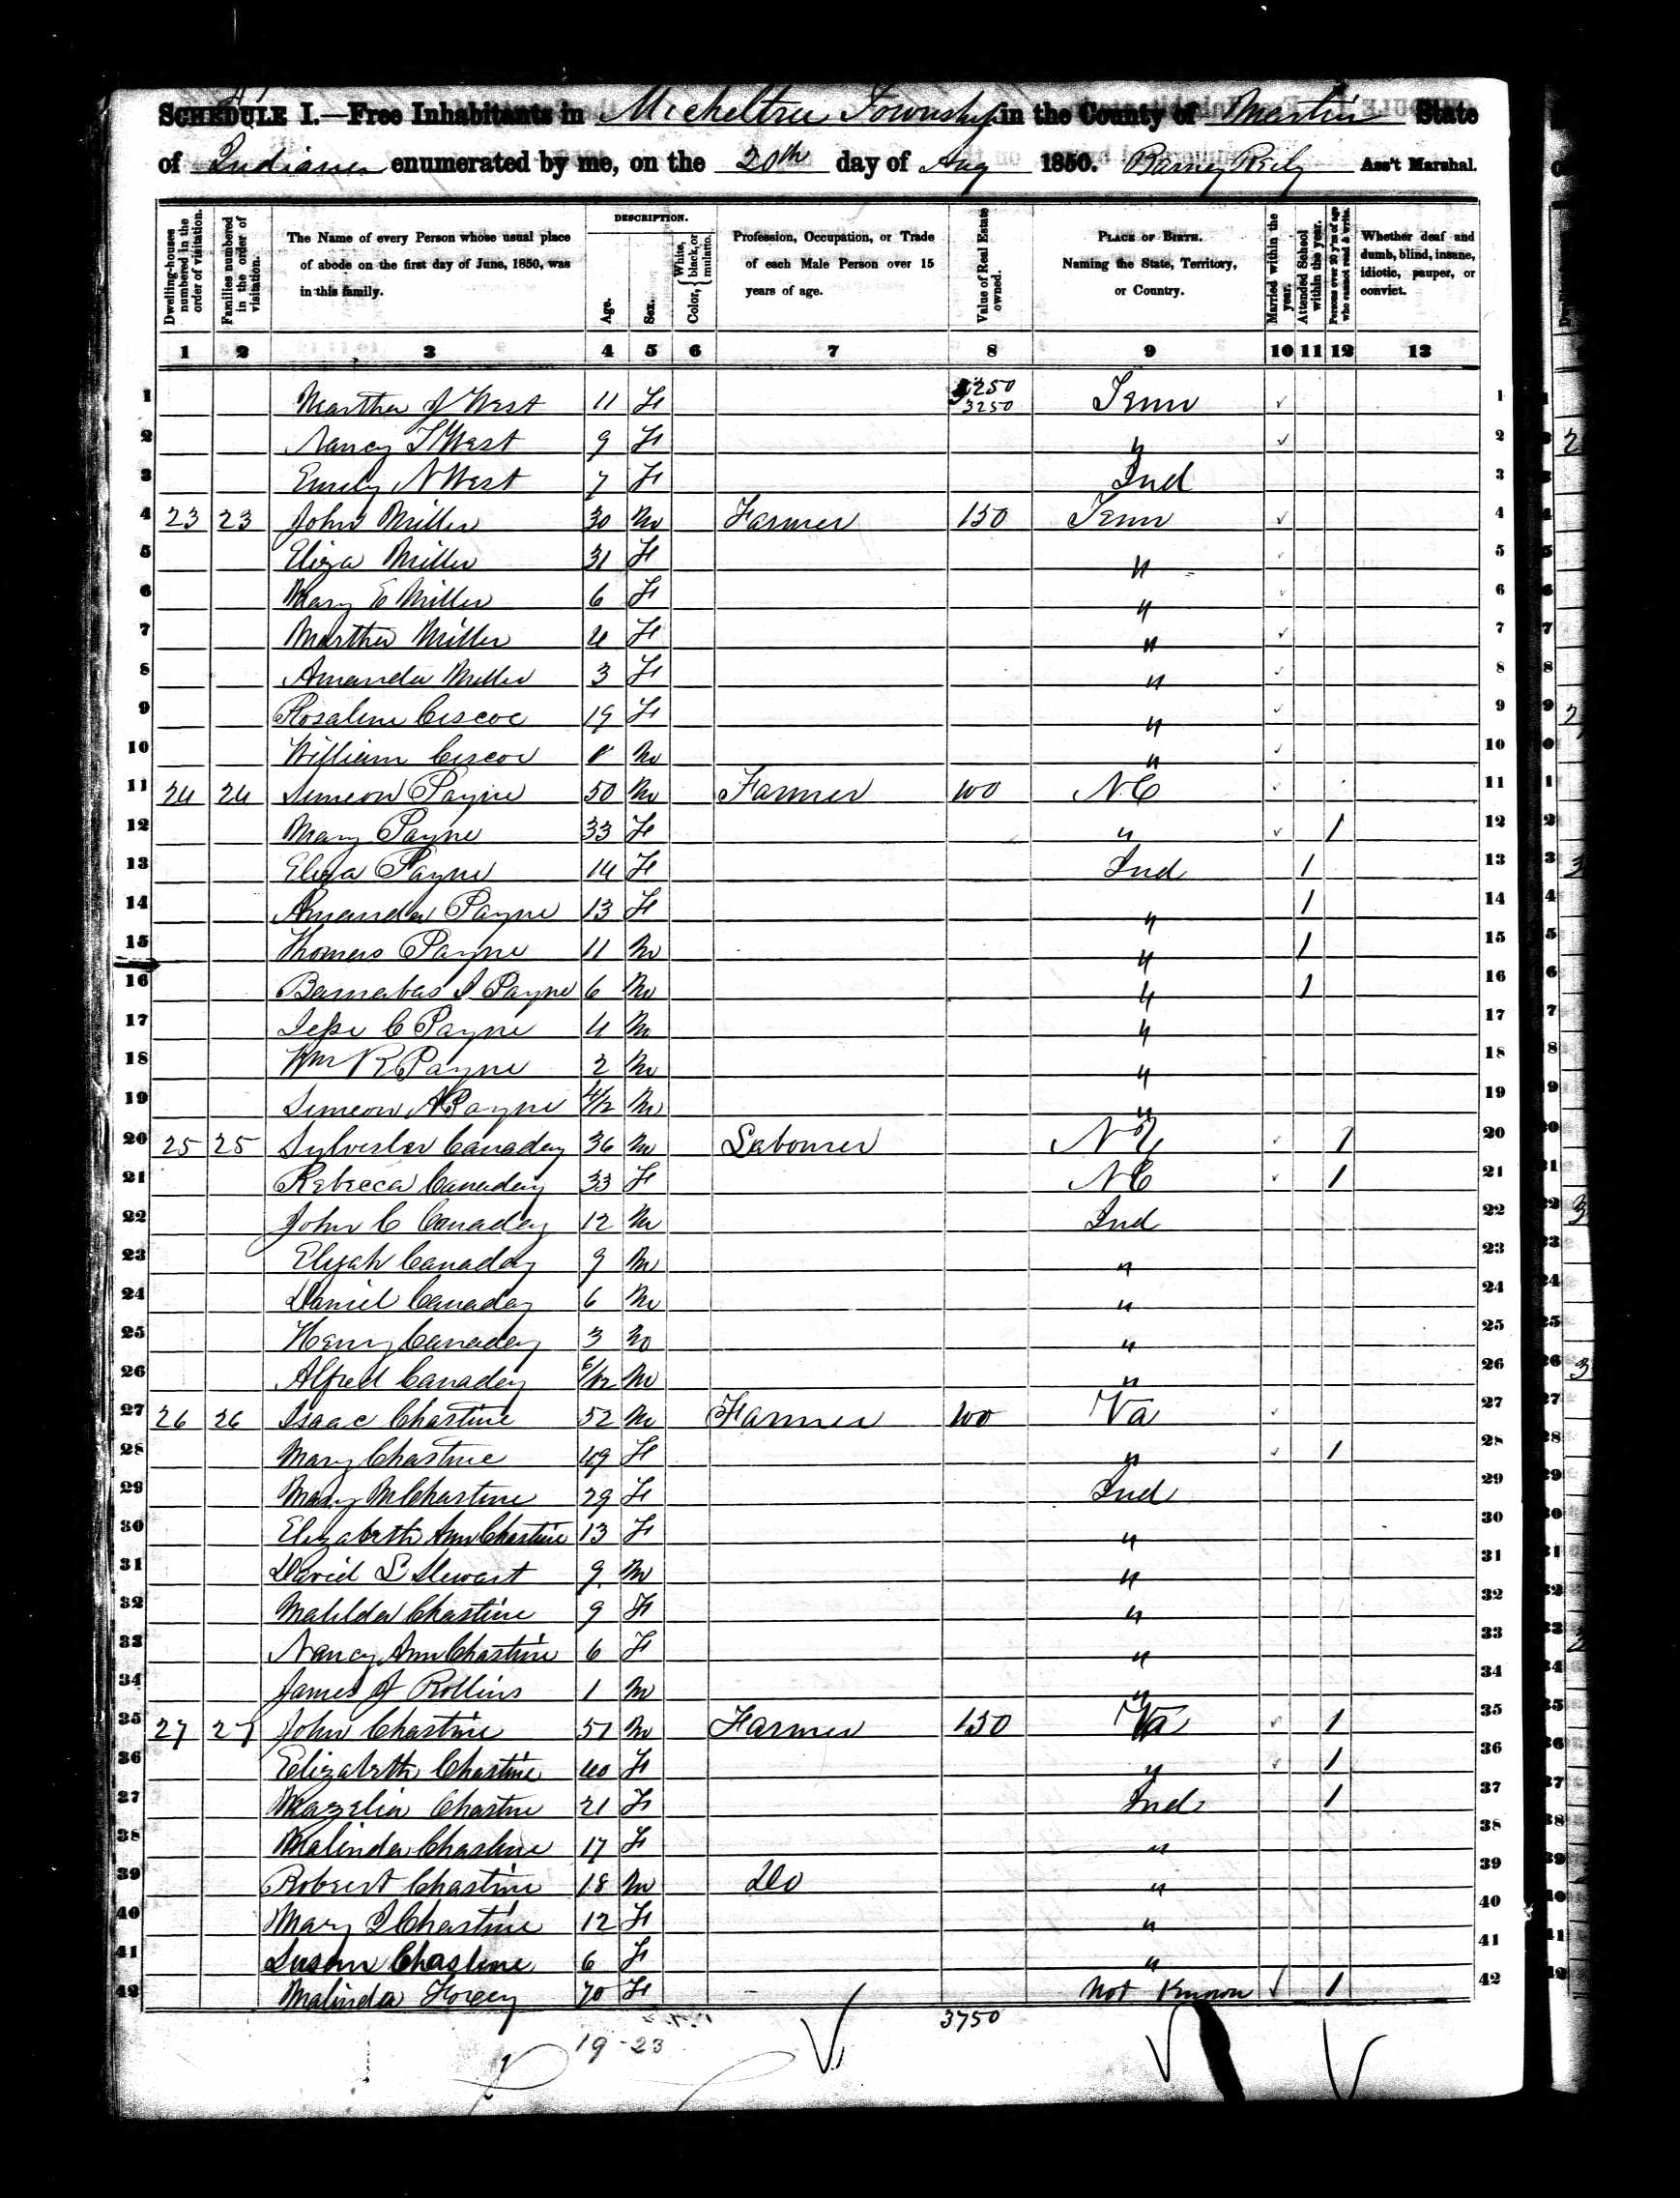 SCHEDULE I.—Free Inhabitants in Micheltree Township in the County of Martin State
of Indiana enumerated by me, on the 20th day of Aug 1850. Barney Reily Ass't Marshal.
Dwelling-houses numbered in the order of visitation.
Families numbered in the order of visitation.
The Name of every Person whose usual place of abode on the first day of June, 1850, was in this family.
DESCRIPTION.
Age.
Sex.
Color, { White, black, or mulatto.
Profession, Occupation, or Trade of each Male Person over 15 years of age.
Value of Real Estate owned.
PLACE OF BIRTH. Naming the State, Territory, or Country.
Married within the year.
Attended School within the year.
Persons over 20 y'rs of age who cannot read & write.
Whether deaf and dumb, blind, insane, idiotic, pauper, or convict.
1 2 3 4 5 6 7 8 9 10 11 12 13
3250
1 Martha J West 11 F 3250 Tenn ✓ 1
2 Nancy T West 9 F " ✓ 2
3 Emily N West 7 F Ind 3
4 23 23 John Miller 30 M Farmer 150 Tenn ✓ 4
5 Eliza Miller 31 F " ✓ 5
6 Mary E Miller 6 F " ✓ 6
7 Martha Miller 4 F " ✓ 7
8 Amanda Miller 3 F " ✓ 8
9 Rosaline Ciscoe 19 F " ✓ 9
10 William Ciscoe M " ✓ 10
11 24 24 Simeon Payne 50 M Farmer 100 N.C ✓ 11
12 Mary Payne 33 F " ✓ 1 12
13 Eliza Payne 14 F Ind 1 13
14 Amanda Payne 13 F " 1 14
15 Thomas Payne 11 M " 1 15
16 Barnabas I Payne 6 M " 1 16
17 Jesse C Payne 4 M " 17
18 Wm R Payne 2 M " 18
19 Simeon A Payne 4/12 M " 19
20 25 25 Sylvester Canaday 36 M Labourer N Y ✓ 1 20
21 Rebecca Canaday 33 F N C ✓ 1 21
22 John C Canaday 12 M Ind 22
23 Elijah Canaday 9 M " 23
24 Daniel Canaday 6 M " 24
25 Henry Canaday 3 M " 25
26 Alfred Canaday 6/12 M " 26
27 26 26 Isaac Chastine 52 M Farmer 100 Va ✓ 27
28 Mary Chastine 49 F " ✓ 1 28
29 Mary M Chastine 29 F Ind 29
30 Elizabeth Ann Chastine 13 F " 30
31 David L Stewart 9 M " 31
32 Matilda Chastine 9 F " 32
33 Nancy Ann Chastine 6 F " 33
34 James J Rollins 1 M " 34
35 27 27 John Chastine 57 M Farmer 150 Va ✓ 1 35
36 Elizabeth Chastine 40 F " ✓ 1 36
37 Mazelia Chastine 21 F Ind 1 37
38 Malinda Chastine 17 F " 38
39 Robert Chastine 18 M Do " 39
40 Mary J Chastine 12 F " 40
41 Susan Chastine 6 F " 41
42 Malinda 70 F Not Known ✓ 1 42
19-23 3750